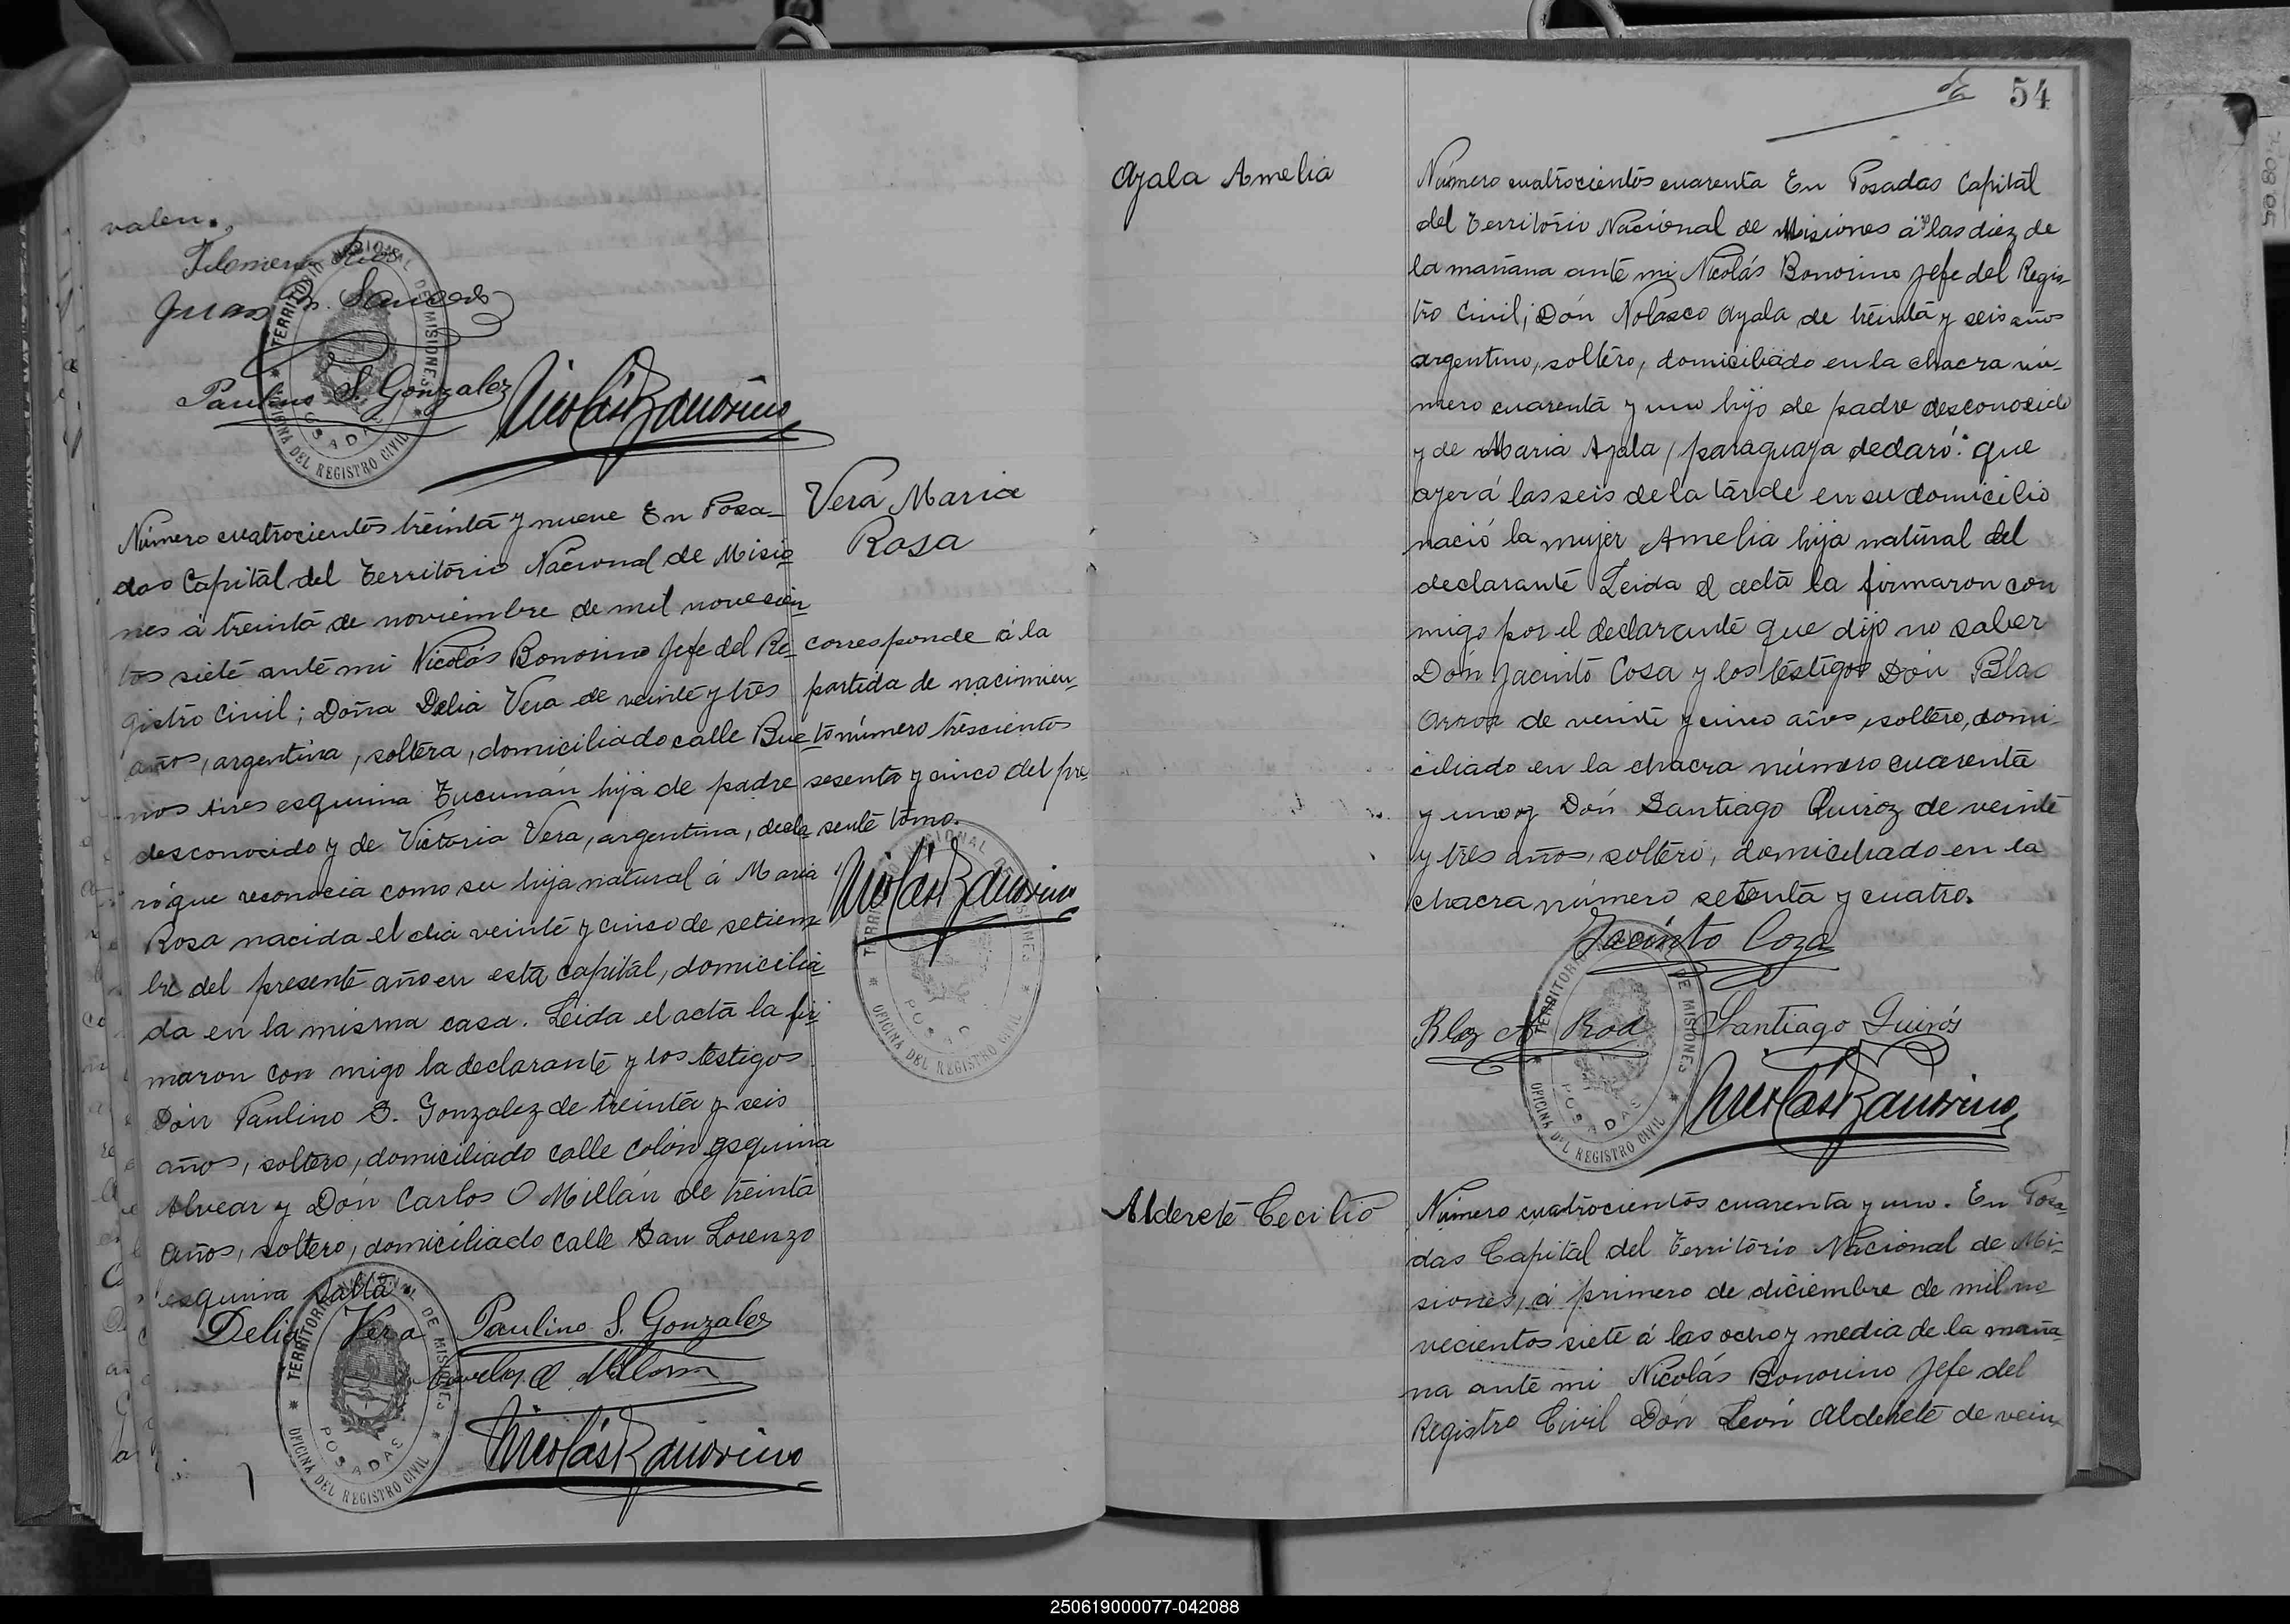 valen.
Filomena Rios
Juan B. Sauced
Paulino S. Gonzalez
Nicolás Bonorino
TERRITORIO NACIONAL DE MISIONES
POSADAS
OFICINA DEL REGISTRO CIVIL
Número cuatrocientos treinta y nueve En Posa-
das Capital del Territorio Nacional de Misio-
nes á treinta de noviembre de mil novecien-
tos siete ante mi Nicolás Bonorino Jefe del Re-
gistro Civil; Doña Delia Vera de veinte y tres
años, argentina, soltera, domiciliado calle Bue-
nos Aires esquina Tucumán hija de padre
desconocido y de Victoria Vera, argentina, decla-
ró que reconocia como su hija natural á Maria
Rosa nacida el dia veinte y cinco de setiem-
bre del presente año en esta capital, domicilia-
da en la misma casa. Leida el acta la fir-
maron con migo la declarante y los testigos
Dón Paulino S. Gonzalez de treinta y seis
años, soltero, domiciliado calle Colón esquina
Alvear y Dón Carlos O Millán de treinta
años, soltero, domiciliado calle San Lorenzo
esquina Salta.
Delia Vera
Paulino S. Gonzalez
Carlos O. Millán
Nicolás Bonorino
TERRITORIO NACIONAL DE MISIONES
POSADAS
OFICINA DEL REGISTRO CIVIL
Vera Maria
Rosa
corresponde á la
partida de nacimien-
to número trescientos
sesenta y cinco del pre
sente tomo.
Nicolás Bonorino
TERRITORIO NACIONAL DE MISIONES
POSADAS
OFICINA DEL REGISTRO CIVIL
54
Ayala Amelia
Número cuatrocientos cuarenta En Posadas Capital
del Territorio Nacional de Misiones á las diez de
la mañana ante mi Nicolás Bonorino Jefe del Regis-
tro Civil; Dón Nolasco Ayala de treinta y seis años
argentino, soltero, domiciliado en la chacra nú-
mero cuarenta y uno hijo de padre desconocido
y de Maria Ayala, paraguaya declaró: que
ayer á las seis de la tarde en su domicilio
nació la mujer Amelia hija natural del
declarante Leida el acta la firmaron con
migo por el declarante que dijo no saber
Dón Jacinto Cosa y los testigos Dón Blas
Arroz de veinte y cinco años, soltero, domi-
ciliado en la chacra número cuarenta
y uno y Dón Santiago Quiroz de veinte
y tres años, soltero, domiciliado en la
chacra número setenta y cuatro.
Jacinto Coza
Blaz A Roa
Santiago Quirós
Nicolás Bonorino
TERRITORIO DE MISIONES
POSADAS
OFICINA DEL REGISTRO CIVIL
Alderete Cecilio
Número cuatrocientos cuarenta y uno. En Posa-
das Capital del Territorio Nacional de Mi-
siones, á primero de diciembre de mil no
vecientos siete á las ocho y media de la maña-
na ante mi Nicolás Bonorino Jefe del
Registro Civil Dón León Alderete de vein-
250619000077-042088